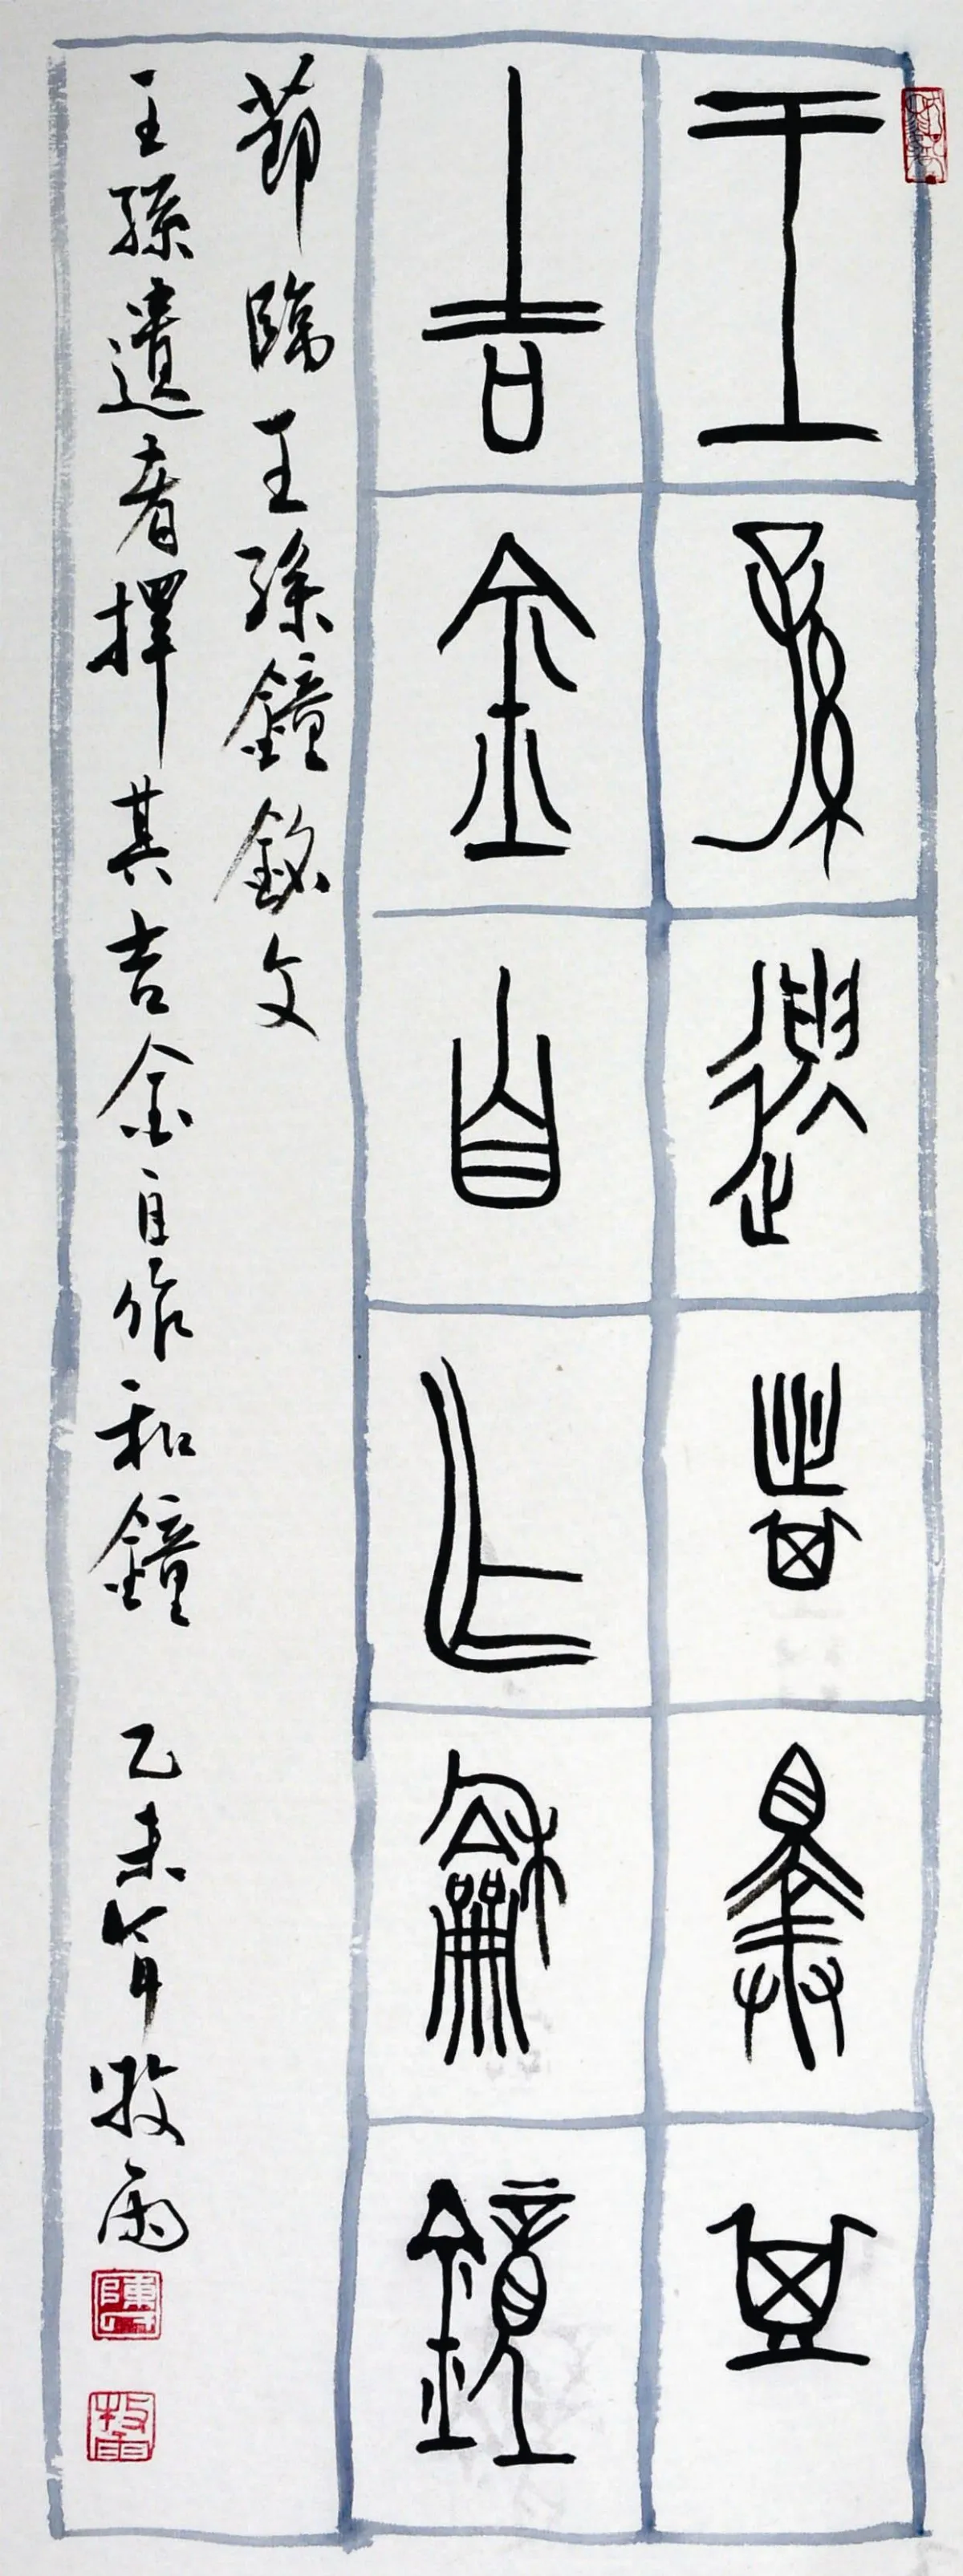 王孫遺者擇其
吉金自乍龢鐘
節臨王孫鐘銘文
王孫遺者擇其吉金自作和鐘 乙未年 牧雨
牧雨